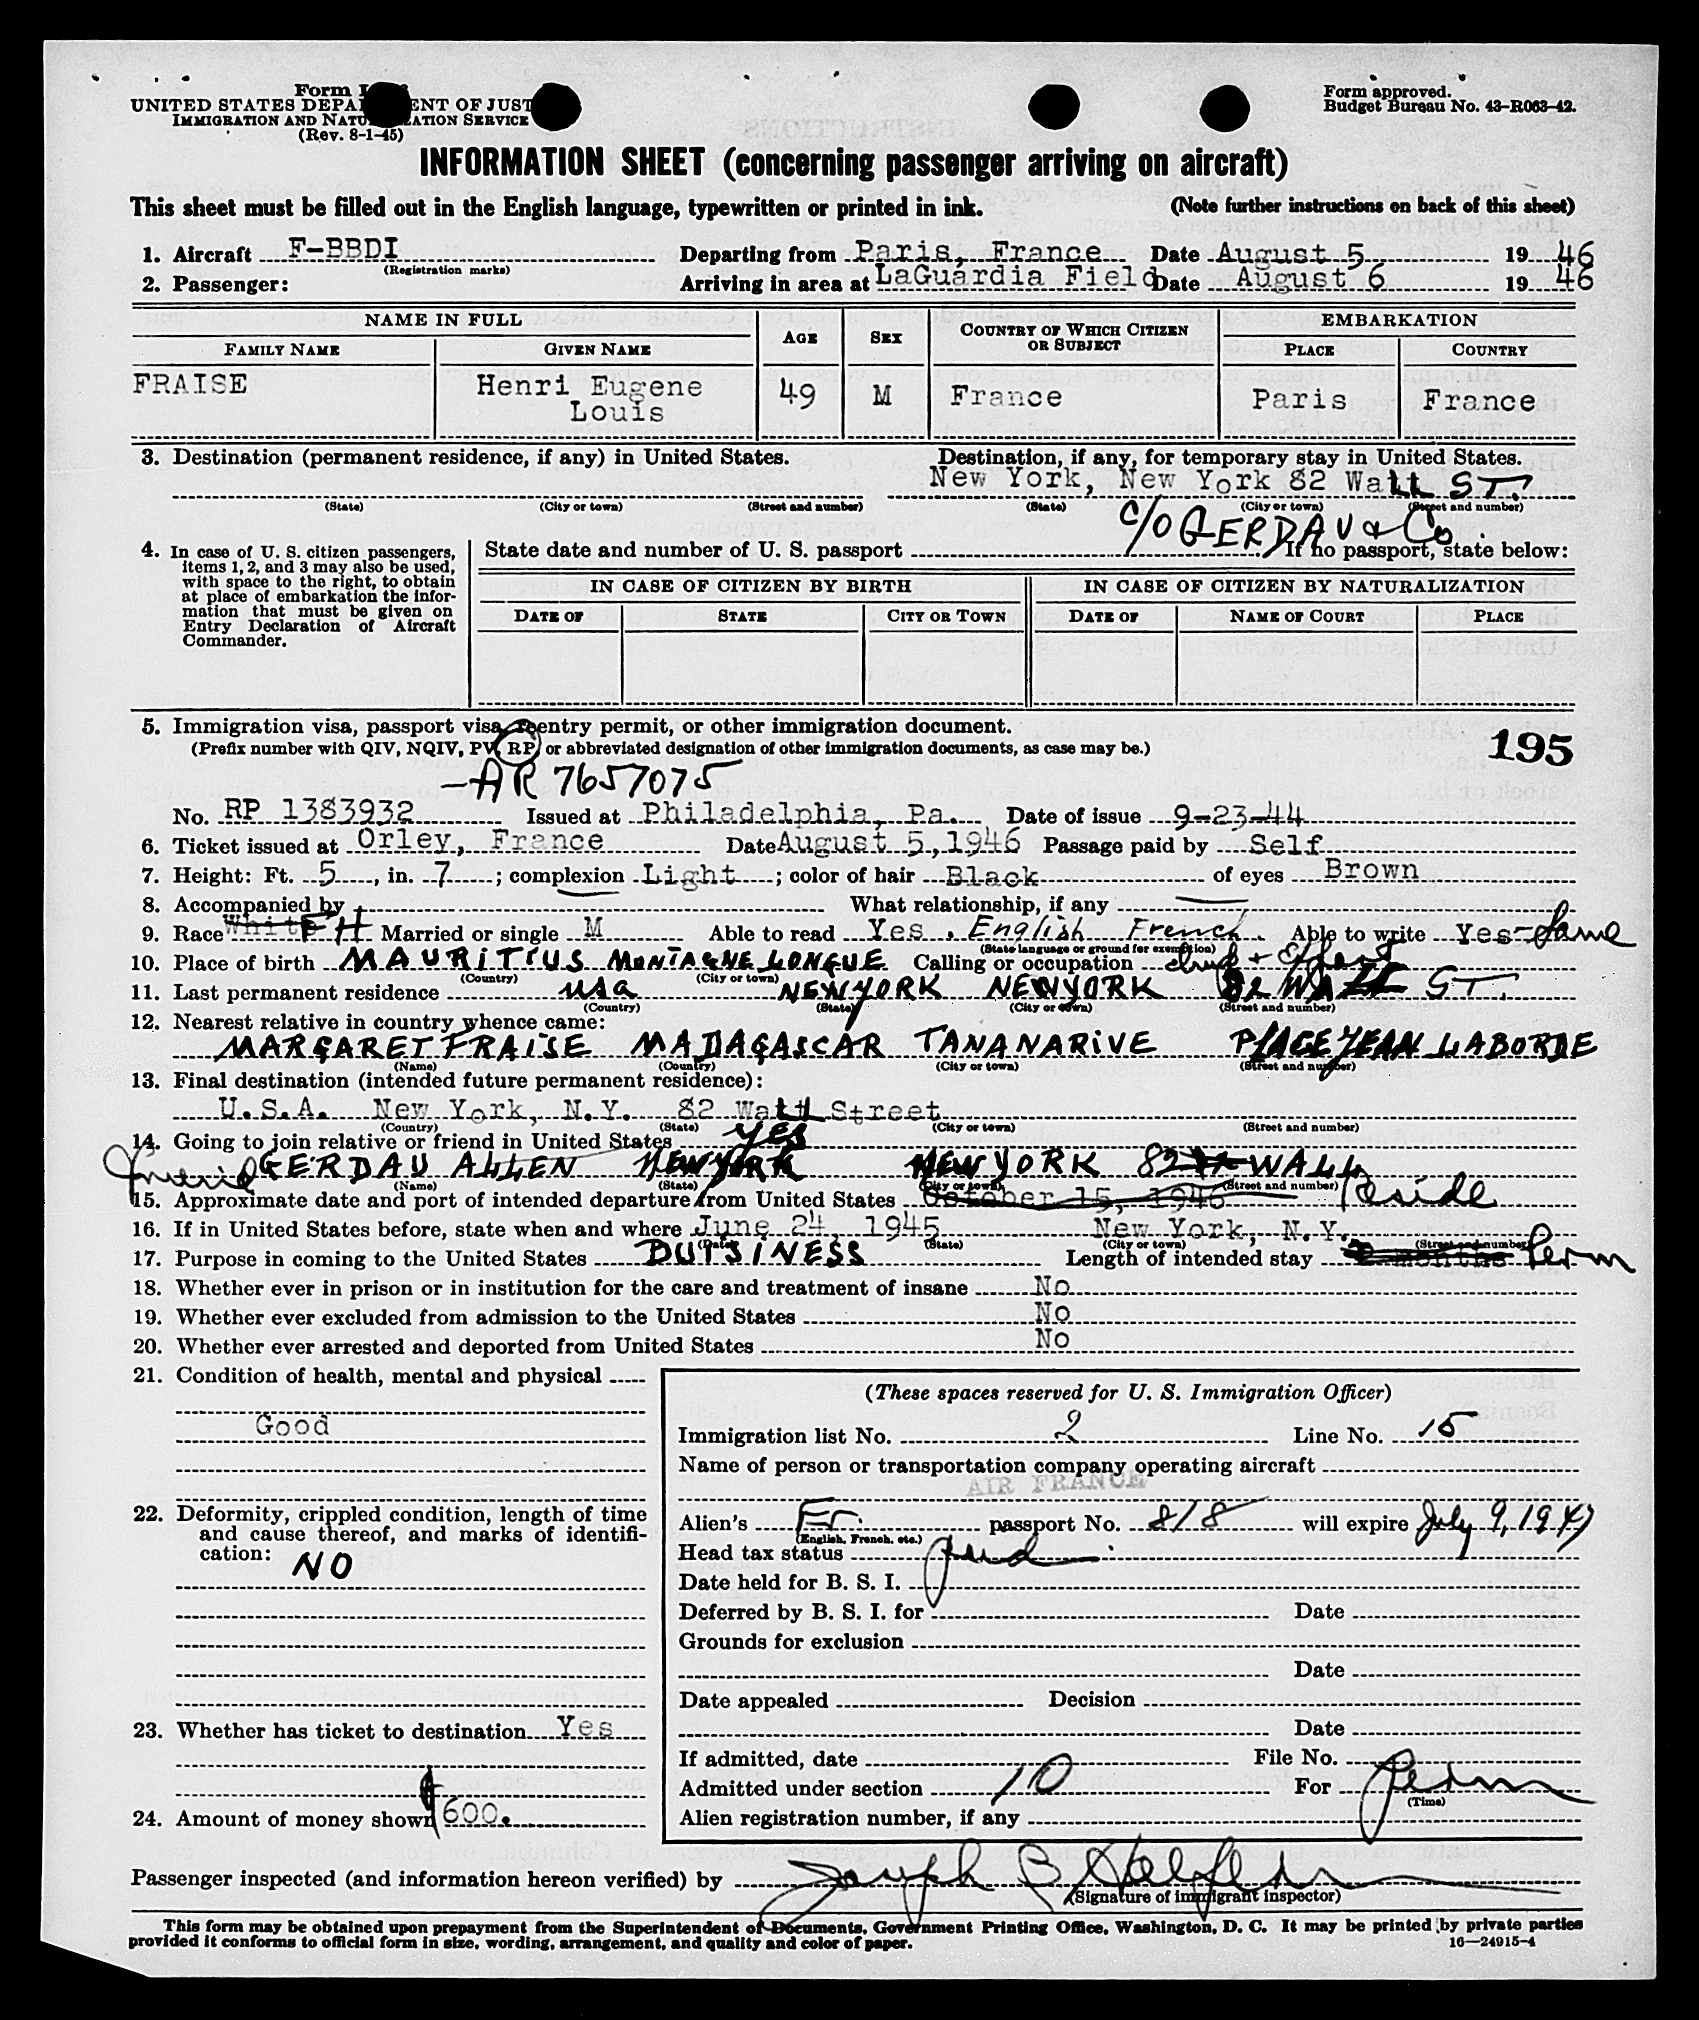 Form I
UNITED STATES DEPA ENT OF JUST
IMMIGRATION AND NATU ATION SERVICE
(Rev. 8-1-45)
Form approved.
Budget Bureau No. 43-R063-42.
INFORMATION SHEET (concerning passenger arriving on aircraft)
This sheet must be filled out in the English language, typewritten or printed in ink. (Note further instructions on back of this sheet)
1. Aircraft F-BBDI Departing from Paris, France Date August 5 19 46
(Registration marks)
2. Passenger: Arriving in area at LaGuardia Field Date August 6 19 46
NAME IN FULL AGE SEX COUNTRY OF WHICH CITIZEN OR SUBJECT EMBARKATION
FAMILY NAME GIVEN NAME PLACE COUNTRY
FRAISE Henri Eugene Louis 49 M France Paris France
3. Destination (permanent residence, if any) in United States. Destination, if any, for temporary stay in United States.
New York, New York 82 Wall ST.
(State) (City or town) (Street and number) (State) (City or town) (Street and number)
c/o GERDAU & Co
4. In case of U. S. citizen passengers, items 1, 2, and 3 may also be used, with space to the right, to obtain at place of embarkation the information that must be given on Entry Declaration of Aircraft Commander.
State date and number of U. S. passport If no passport, state below:
IN CASE OF CITIZEN BY BIRTH IN CASE OF CITIZEN BY NATURALIZATION
DATE OF STATE CITY OR TOWN DATE OF NAME OF COURT PLACE
5. Immigration visa, passport visa, reentry permit, or other immigration document.
(Prefix number with QIV, NQIV, PV, RP, or abbreviated designation of other immigration documents, as case may be.)
195
-AR 7657075
No. RP 1383932 Issued at Philadelphia, Pa. Date of issue 9-23-44
6. Ticket issued at Orley, France Date August 5, 1946 Passage paid by Self
7. Height: Ft. 5, in. 7; complexion Light; color of hair Black of eyes Brown
8. Accompanied by What relationship, if any
9. Race White FH Married or single M Able to read Yes, English French Able to write Yes-Same
(State language or ground for exemption)
10. Place of birth MAURITIUS MONTAGNE LONGUE Calling or occupation
(Country) (City or town)
11. Last permanent residence USA NEWYORK NEWYORK 82 WALL ST.
(Country) (State) (City or town) (Street and number)
12. Nearest relative in country whence came:
MARGARET FRAISE MADAGASCAR TANANARIVE PLACE JEAN LABORDE
(Name) (Country) (City or town) (Street and number)
13. Final destination (intended future permanent residence):
U.S.A. New York, N.Y. 82 Wall Street
(Country) (State) (City or town) (Street and number)
14. Going to join relative or friend in United States YES
friend GERDAU ALLEN NEWYORK NEW YORK 82 WALL
(Name) (State) (City or town) (Street and number)
15. Approximate date and port of intended departure from United States October 15, 1946 Reside
16. If in United States before, state when and where June 24, 1945 New York, N.Y.
(Date) (State) (City or town) (Street and number)
17. Purpose in coming to the United States BUISINESS Length of intended stay 2 months Perm
18. Whether ever in prison or in institution for the care and treatment of insane No
19. Whether ever excluded from admission to the United States No
20. Whether ever arrested and deported from United States No
21. Condition of health, mental and physical
Good
22. Deformity, crippled condition, length of time and cause thereof, and marks of identification: NO
23. Whether has ticket to destination Yes
24. Amount of money shown $600.
(These spaces reserved for U. S. Immigration Officer)
Immigration list No. 2 Line No. 15
Name of person or transportation company operating aircraft
AIR FRANCE
Alien's Fr. passport No. 818 will expire July 9, 1947
(English, French, etc.)
Head tax status
Date held for B. S. I.
Deferred by B. S. I. for Date
Grounds for exclusion
Date
Date appealed Decision
Date
If admitted, date File No.
Admitted under section 10 For Perm
(Time)
Alien registration number, if any
Passenger inspected (and information hereon verified) by Joseph B
(Signature of immigrant inspector)
This form may be obtained upon prepayment from the Superintendent of Documents, Government Printing Office, Washington, D. C. It may be printed by private parties
provided it conforms to official form in size, wording, arrangement, and quality and color of paper.
16—24915-4